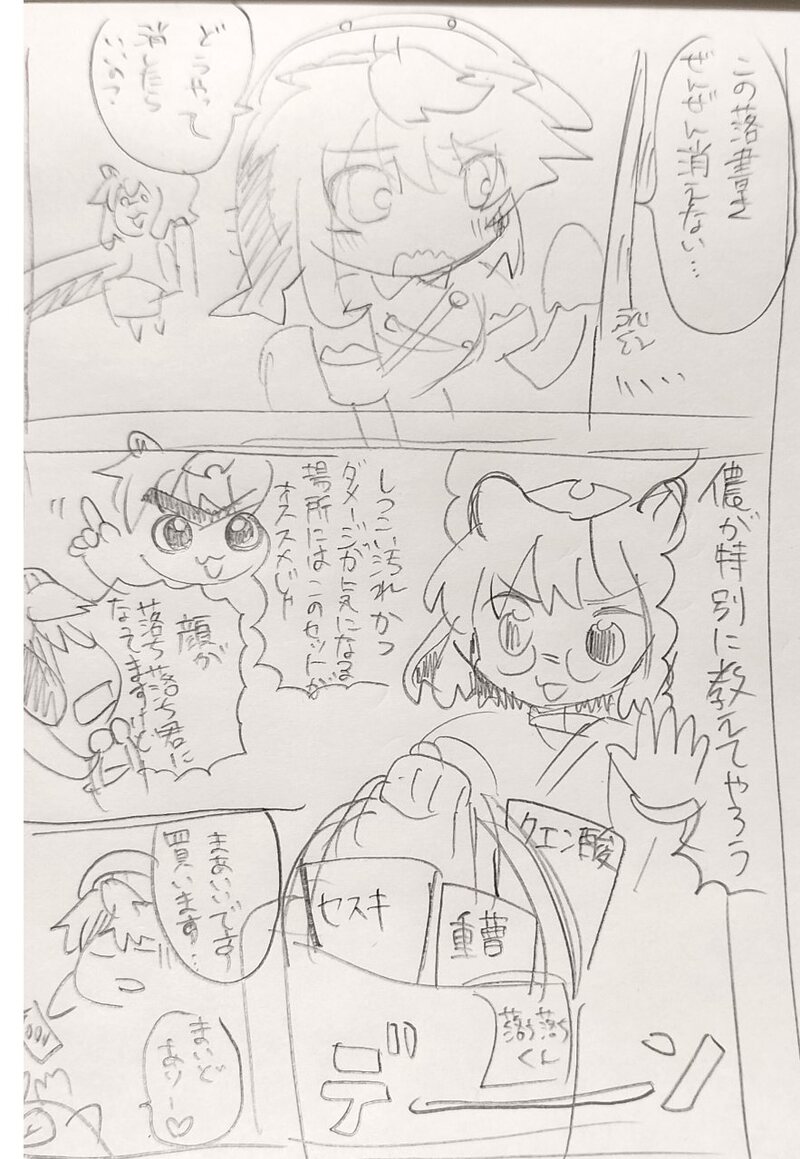 この落書き
ぜんぜん消えない…
どうやって
消したら
いいの?
儂が特別に教えてやろう
しつこい汚れかつ
ダメージが気になる
場所にはこのセットが
オススメじゃ
顔が
落ち落ち君に
なってますけど
クエン酸
重曹
セスキ
落ち落ち
くん
デーン
まあいいです
買います…
まいど
ありー♡